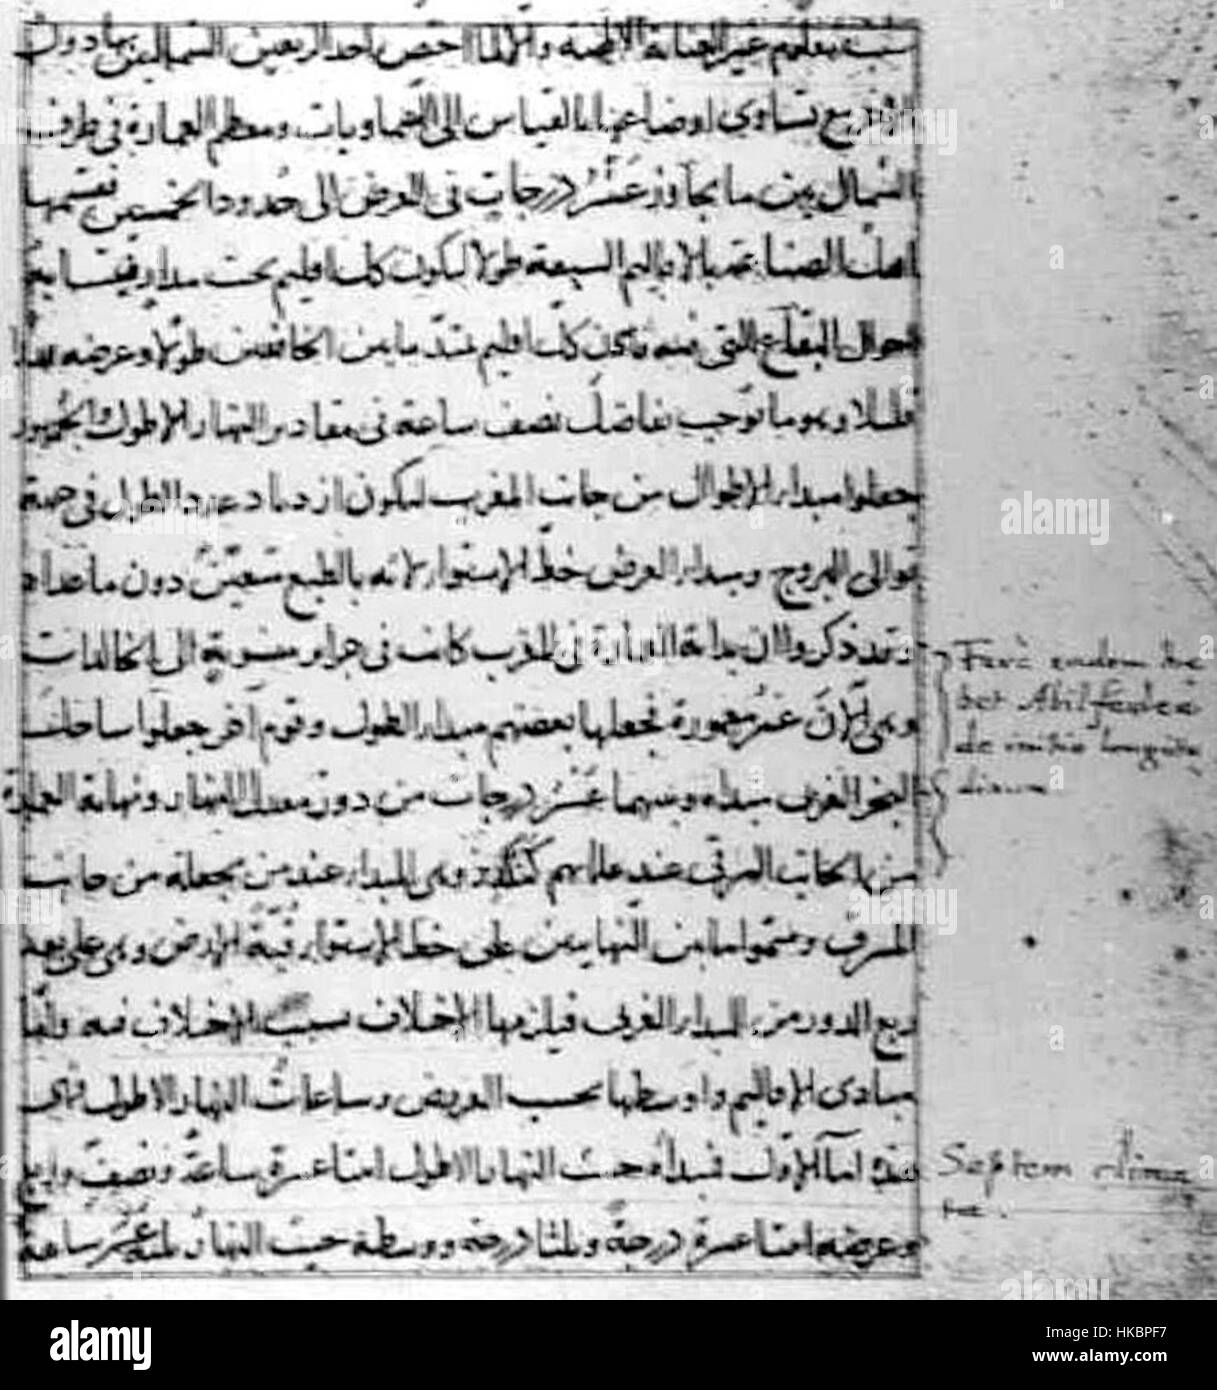 سبب معلوم غير العناية الالهية وانما اختص احد الربعين الشماليين بها دون
تساوى اوضاعها بالقياس الى السماويات ومعظم العمارة فى طرف
الشمال بين ما يجاوز عشر درجات فى العرض الى حدود الخمسين فقسمها
اهل الصناعة بالاقاليم السبعة طولا ليكون كل اقليم تحت مدار فيتشابه
احوال البقاع التى فيه فيكون كل اقليم يمتد ما بين الخافقين طولا وعرضه
قليلا وهو ما يوجب تفاضل نصف ساعة فى مقادير النهار الاطول والجمهور
جعلوا مبدا الاطوال من جانب المغرب ليكون ازدياد عدد الطول فى جهة
توالى البروج ومبدا العرض خط الاستواء لانه بالطبع متعين دون ما عداه
وقد ذكروا ان بداية العمارة فى المغرب كانت فى جزاير منسوبة الى الخالدات
وهى الآن غير معمورة فجعلها بعضهم مبدا الطول وقوم آخر جعلوا ساحل
البحر الغربى مبداه وبينهما عشر درجات من دور معدل النهار ونهاية العمارة
من الجانب الشرقى عند علمائهم كنكدز وهى المبدا عند من يجعله من جانب
المشرق وسموا ما بين النهايتين على خط الاستواء قبة الارض وهى على بعد
ربع الدور من المبدا الغربى فيلزمها الاختلاف بسبب الاختلاف فيه واما
مبادى الاقاليم واوسطها بحسب العروض وساعات النهار الاطول فهى
هذه اما الاول فمبداه حيث النهار الاطول اثنا عشرة ساعة ونصف وربع
وعرضه اثنا عشرة درجة وثلثا درجة ووسطه حيث النهار ثلثة عشر ساعة
Ferè eadem ha-
bet Abilfedea
de initio longitu-
dinum
Septem clima-
ta.
alamy stock photo
HKBPF7
www.alamy.com